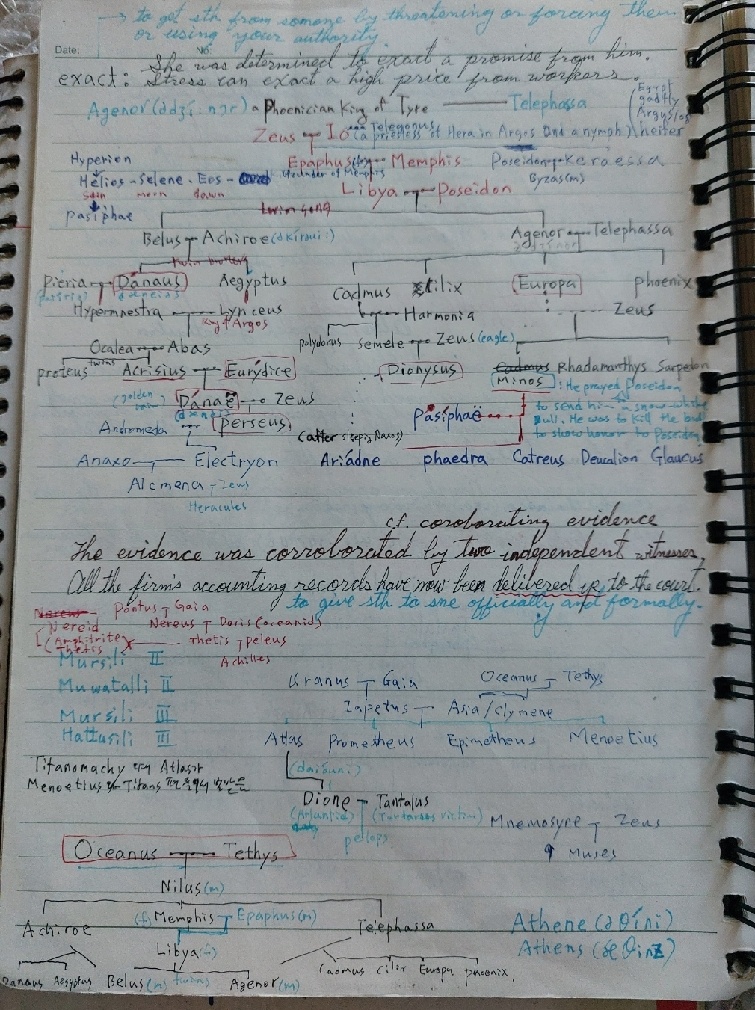 → to get sth from someone by threatening or forcing them
or using your authority
Date: No.
She was determined to exact a promise from him.
exact: Stress can exact a high price from workers.
Agenor a Phoenician King of Tyre — Telephassa
Zeus Io (a priestess of Hera in Argos and a nymph)
Epaphus Memphis Poseidon Keraessa
founder of Memphis
Hyperion
Helios - Selene - Eos
sun moon dawn
Libya Poseidon
pasiphae
twin
Belus Achiroe Agenor Telephassa
Pieria Danaus Aegyptus
Cadmus Cilix Europa phoenix
Hypermnestra Lynceus
King of Argos
Harmonia Zeus
Ocalea Abas
polydorus Semele Zeus (eagle)
proteus twins Acrisius Eurydice
Dionysus
Cadmus Rhadamanthys Sarpedon
Minos: He prayed Poseidon
to send him a snow-white
bull. He was to kill the bull
to show honor to Poseidon
(golden rain) Danaë Zeus
Pasiphaë
Andromeda perseus
Anaxo Electryon
Ariadne phaedra Catreus Deucalion Glaucus
Alcmena - Zeus
Heracules
cf. coroborating evidence
The evidence was corroborated by two independent witnesses.
All the firm's accounting records have now been delivered up to the court.
to give sth to sne officially and formally.
Nereus Pontus Gaia
Nereid Nereus Doris (oceanid)
Amphitrite
Thetis Thetis peleus
Achilles
Mursili II
Muwatalli II
Mursili III
Hattusili III
Uranus Gaia Oceanus Tethys
Iapetus Asia/Clymene
Atlas Prometheus Epimetheus Menoetius
Titanomachy 때 Atlas와
Menoetius는 Titans
Dione Tantalus
(Tartarus victim)
pelops
Mnemosyne Zeus
9 Muses
Oceanus Tethys
Nilus (m)
Achiroe (f) Memphis Epaphus (m) Telephassa
Libya
Danaus Aegyptus Belus (m) twins Agenor (m)
Cadmus Cilix Europa phoenix
Athene (əθíni)
Athens (æθinz)